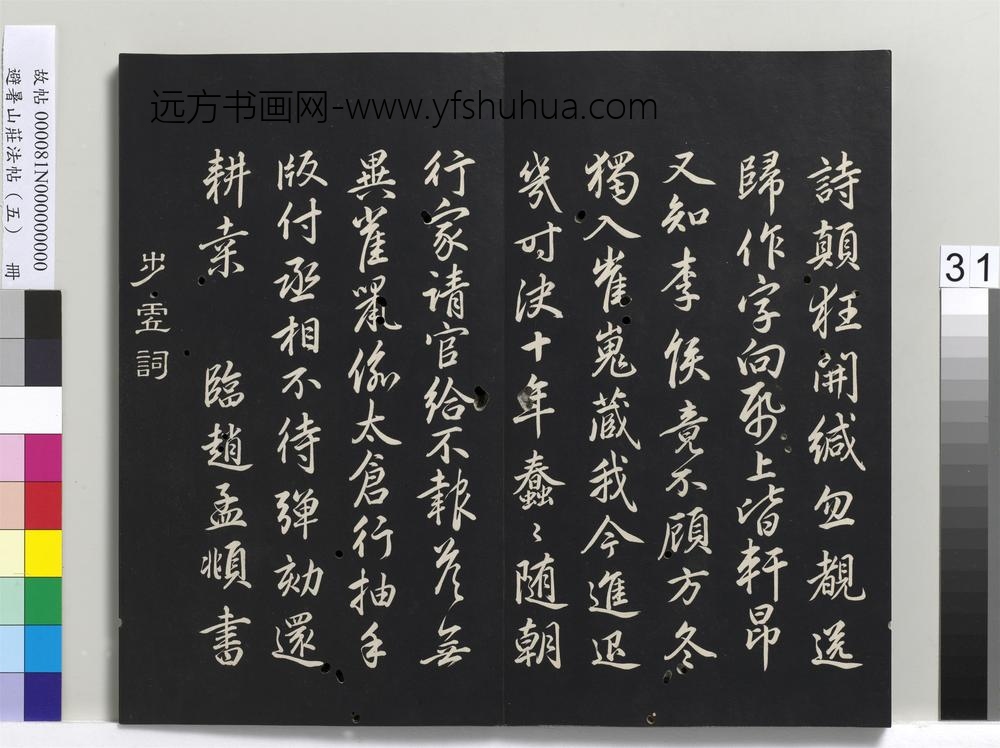 远方书画网-www.yfshuhua.com
詩顛狂開緘勿覩送
歸作字向帋上皆軒昂
又知李侯竟不顧方冬
獨入崔嵬藏我今進退
幾时決十年蠢〻随朝
行家请官給不報荅無
異雀鼠偷太倉行抽手
版付丞相不待弹劾還
耕桒 臨趙孟頫書
步虛詞
故帖 000081N000000000
避暑山莊法帖(五) 冊
31